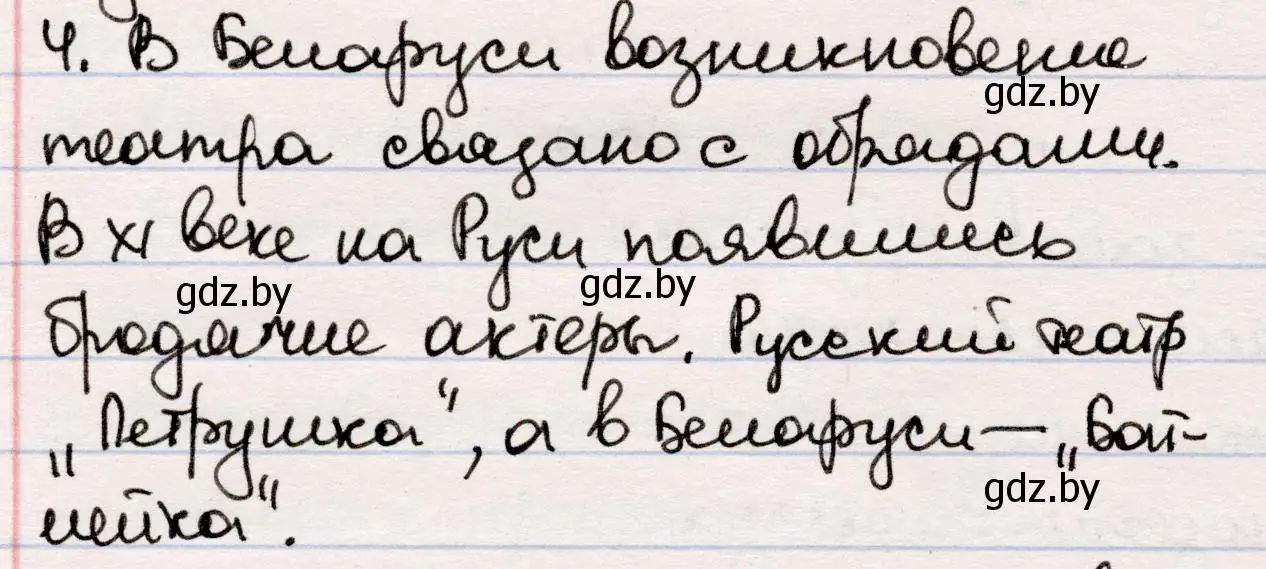 4. В Беларуси возникновение
gdz.by
театра связано с обрядами.
В XI веке на Руси появились
gdz.by gdz.by
бродячие актеры. Русский театр
„Петрушка“, а в Беларуси — „Бат-
gdz.by
лейка“.